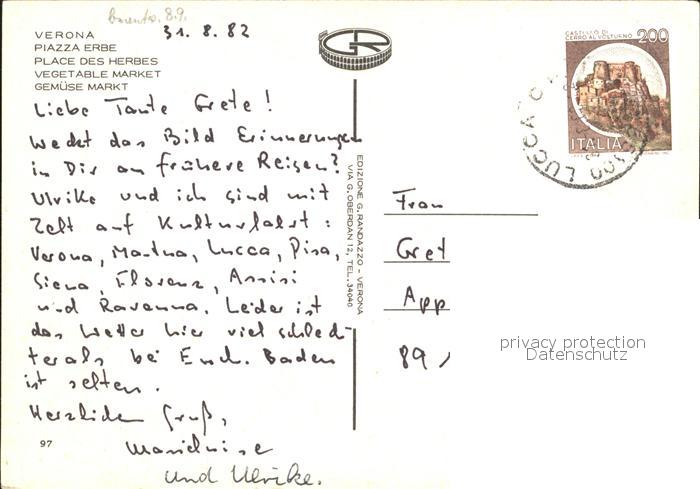 31. 8. 82
VERONA
PIAZZA ERBE
PLACE DES HERBES
VEGETABLE MARKET
GEMÜSE MARKT
Liebe Tante Grete!
Weckt das Bild Erinnerungen
in Dir an frühere Reisen?
Ulrike und ich sind mit
Zelt auf Kulturfahrt:
Verona, Mantua, Lucca, Pisa,
Siena, Florenz, Assisi
und Ravenna. Leider ist
das Wetter hier viel schlech-
ter als bei Euch. Baden
ist selten.
Herzlichen Gruß,
und Ulrike.
97
EDIZIONE G. RANDAZZO - VERONA
VIA G. OBERDAN 12, TEL. 34040
CASTELLO DI
CERRO AL VOLTURNO 200
ITALIA
LUCCA
Frau
Gret
App
89
privacy protection
Datenschutz